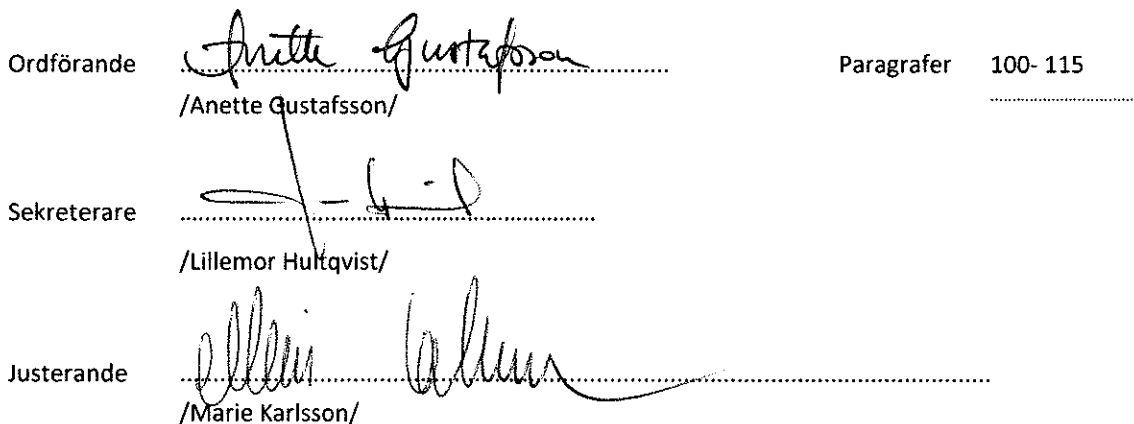 Ordförande Anette Gustafsson Paragrafer 100- 115
/Anette Gustafsson/
Sekreterare
/Lillemor Hultqvist/
Justerande
/Marie Karlsson/